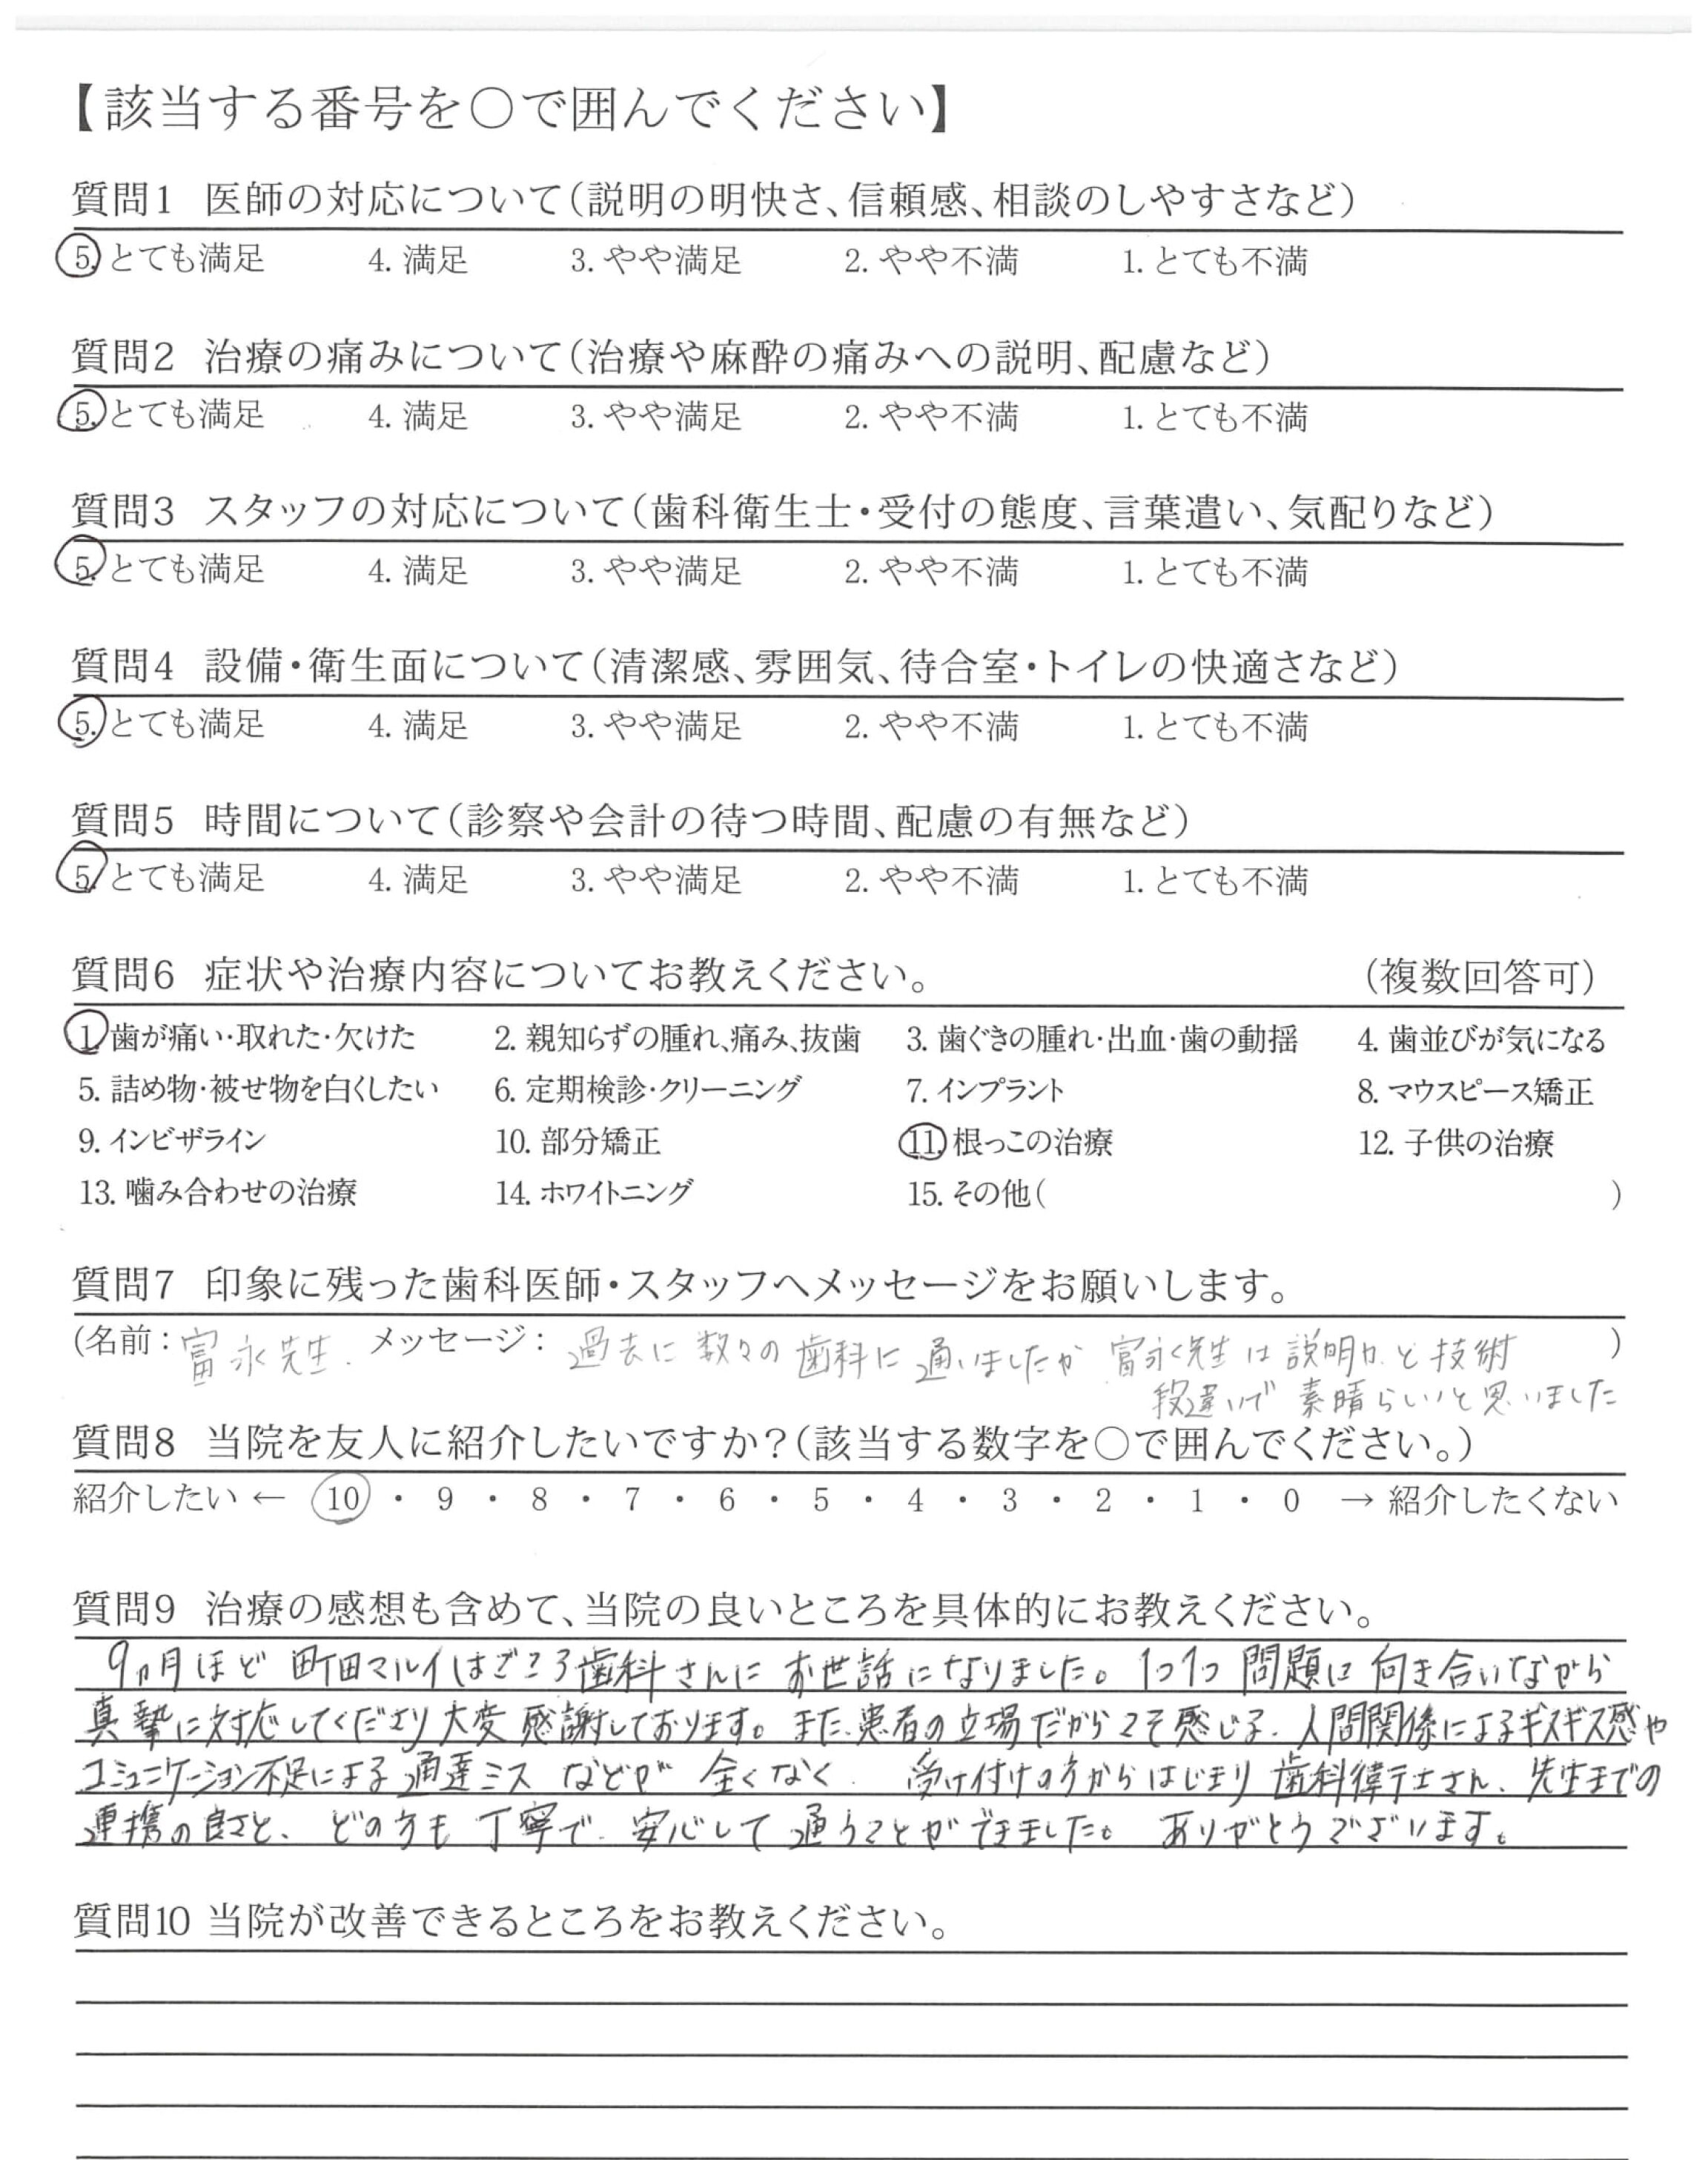 【該当する番号を○で囲んでください】
質問1 医師の対応について(説明の明快さ、信頼感、相談のしやすさなど)
5. とても満足 4. 満足 3. やや満足 2. やや不満 1. とても不満
質問2 治療の痛みについて(治療や麻酔の痛みへの説明、配慮など)
5. とても満足 4. 満足 3. やや満足 2. やや不満 1. とても不満
質問3 スタッフの対応について(歯科衛生士・受付の態度、言葉遣い、気配りなど)
5. とても満足 4. 満足 3. やや満足 2. やや不満 1. とても不満
質問4 設備・衛生面について(清潔感、雰囲気、待合室・トイレの快適さなど)
5. とても満足 4. 満足 3. やや満足 2. やや不満 1. とても不満
質問5 時間について(診察や会計の待つ時間、配慮の有無など)
5. とても満足 4. 満足 3. やや満足 2. やや不満 1. とても不満
質問6 症状や治療内容についてお教えください。 (複数回答可)
1. 歯が痛い・取れた・欠けた 2. 親知らずの腫れ、痛み、抜歯 3. 歯ぐきの腫れ・出血・歯の動揺 4. 歯並びが気になる
5. 詰め物・被せ物を白くしたい 6. 定期検診・クリーニング 7. インプラント 8. マウスピース矯正
9. インビザライン 10. 部分矯正 11. 根っこの治療 12. 子供の治療
13. 噛み合わせの治療 14. ホワイトニング 15. その他( )
質問7 印象に残った歯科医師・スタッフへメッセージをお願いします。
(名前:富永先生. メッセージ: 過去に数々の歯科に通いましたが 富永先生は説明力と技術 )
段違いで 素晴らしいと思いました
質問8 当院を友人に紹介したいですか?(該当する数字を○で囲んでください。)
紹介したい ← 10 ・ 9 ・ 8 ・ 7 ・ 6 ・ 5 ・ 4 ・ 3 ・ 2 ・ 1 ・ 0 → 紹介したくない
質問9 治療の感想も含めて、当院の良いところを具体的にお教えください。
9ヵ月ほど 町田マルイはごころ歯科さんに お世話になりました。1つ1つ 問題に 向き合いながら
真摯に対応してくださり大変 感謝しております。また、患者の立場だからこそ感じる、人間関係によるギスギス感や
コミュニケーション不足による 通達ミス などが 全くなく、受け付けの方からはじまり 歯科衛士さん、先生までの
連携の良さと、どの方も 丁寧で、安心して 通うことができました。ありがとうございます。
質問10 当院が改善できるところをお教えください。